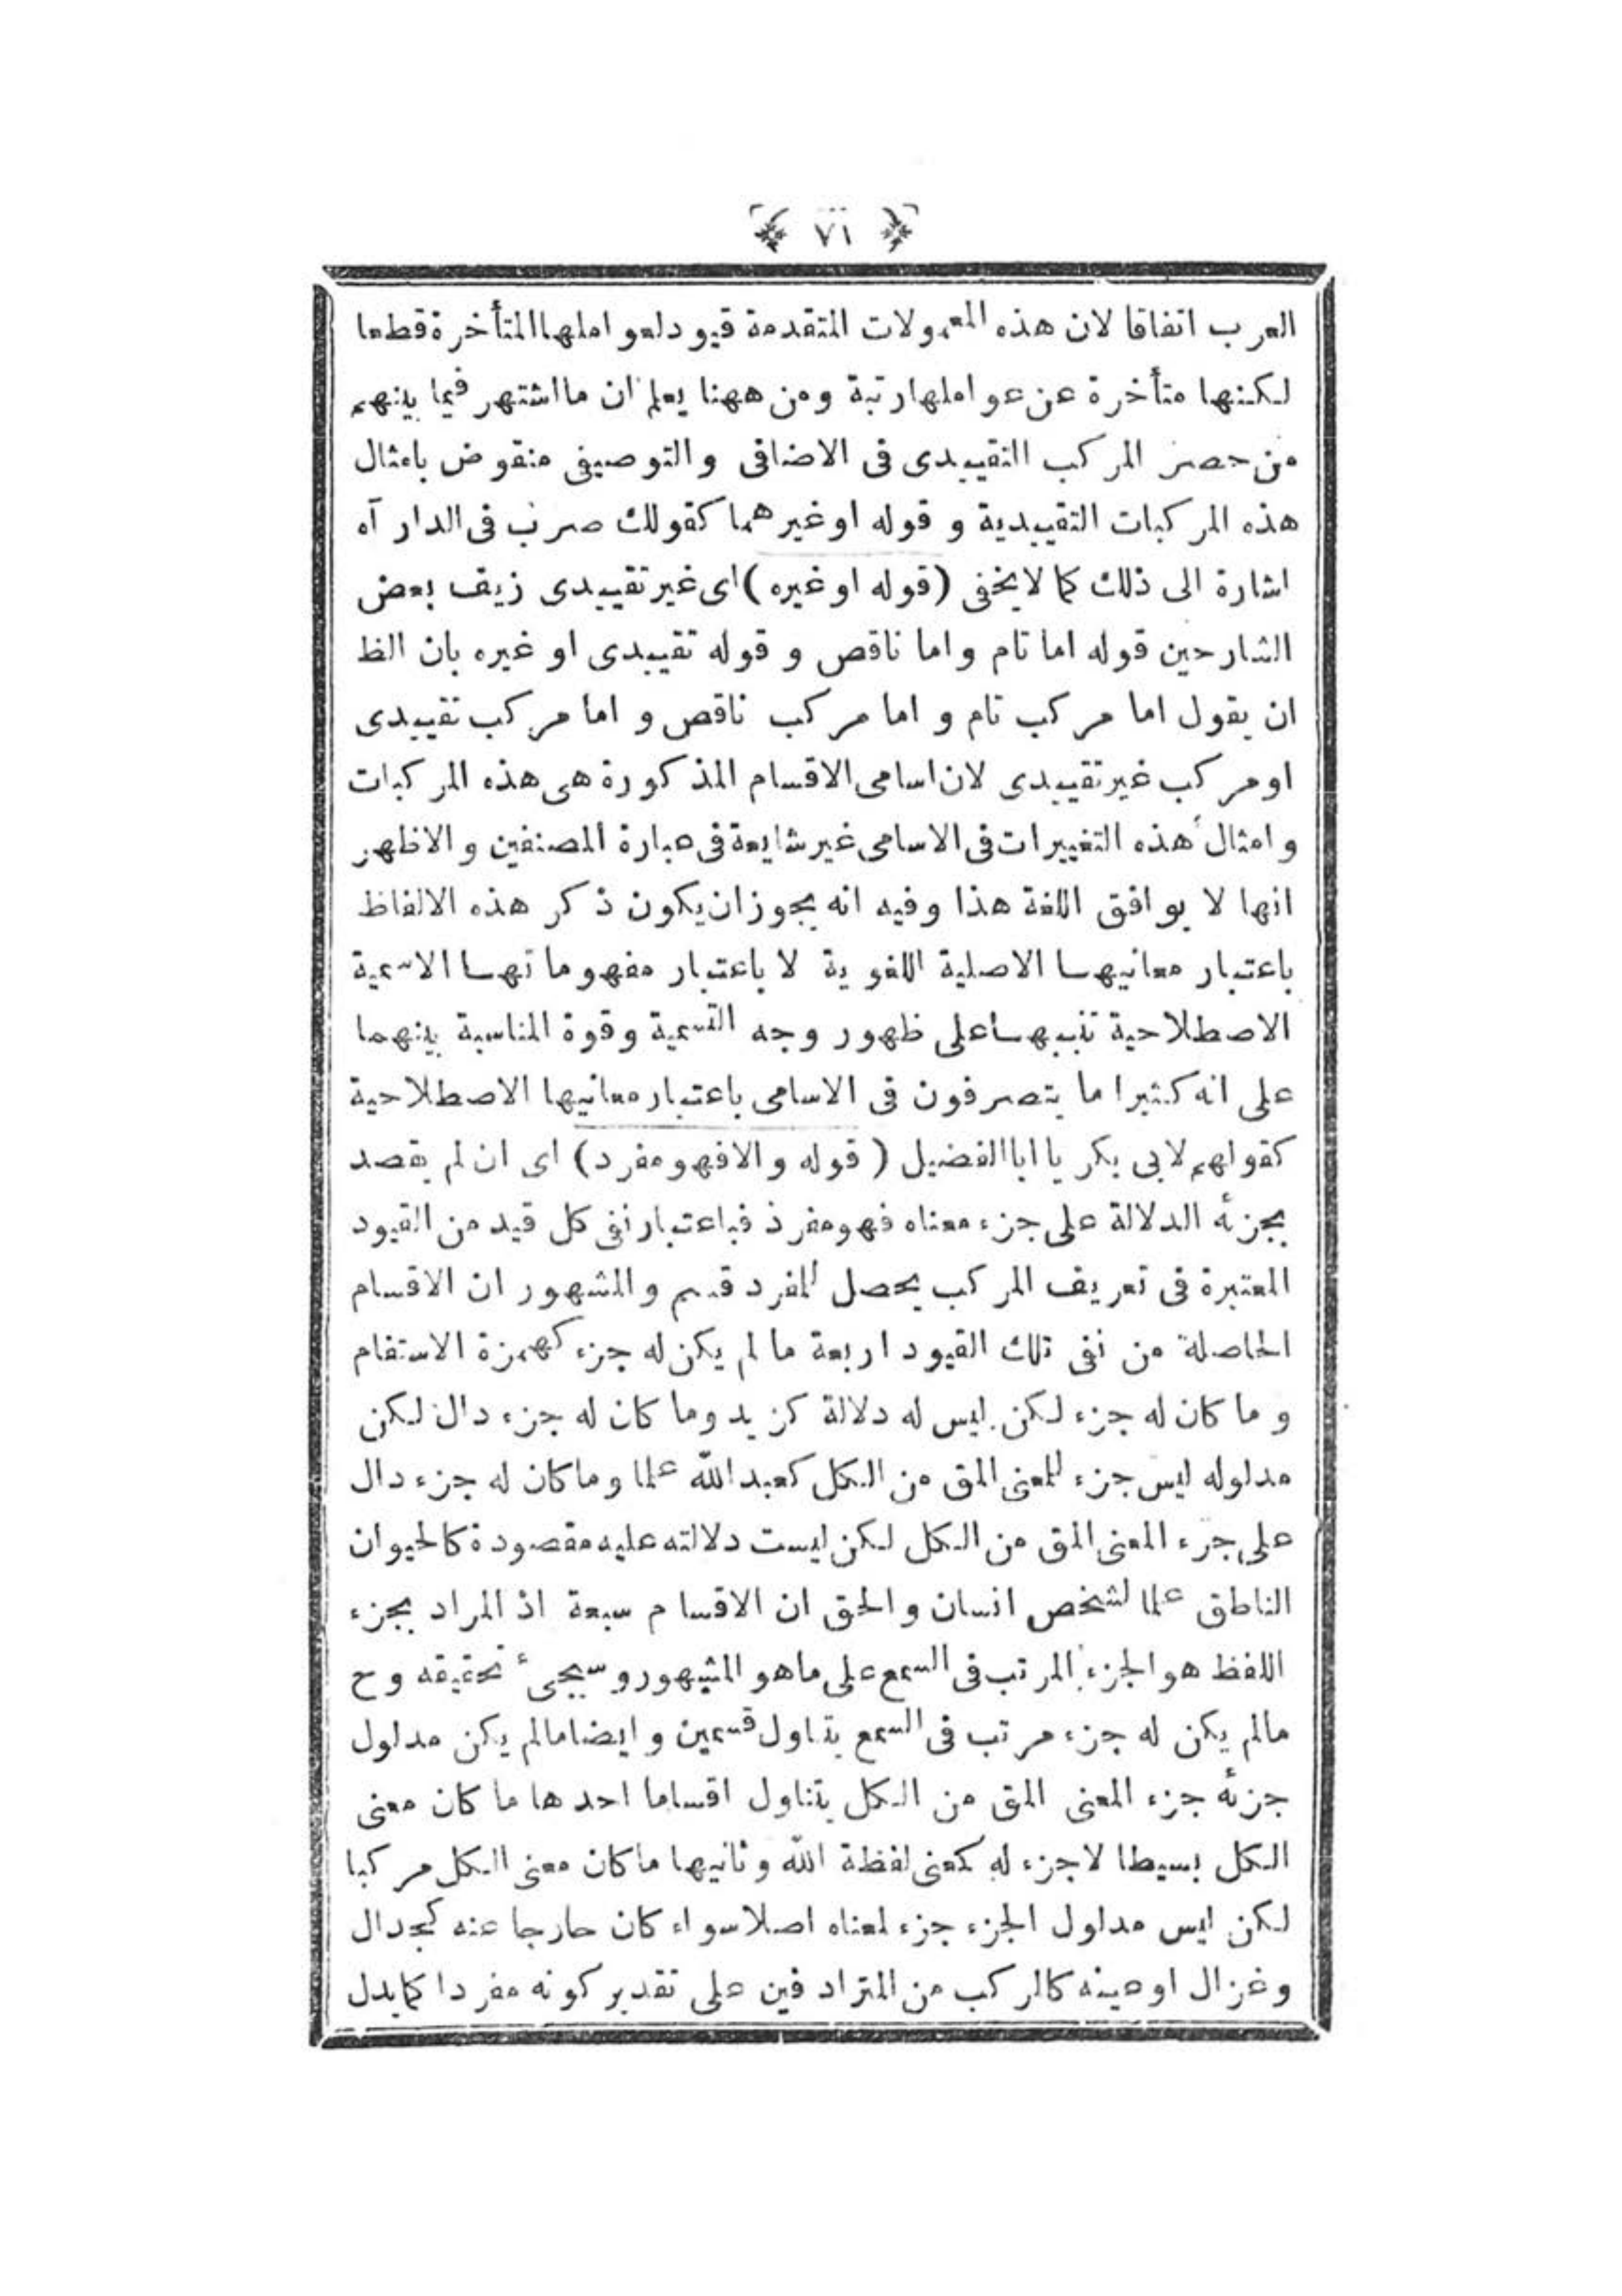 ٧١
العرب اتفاقا لان هذه المعمولات المتقدمة قيود لعواملها المتأخرة قطعا
لكنها متأخرة عن عواملها رتبة ومن ههنا يعلم ان ما اشتهر فيما بينهم
من حصر المركب التقييدى فى الاضافى والتوصيفى منقوض بامثال
هذه المركبات التقييدية و قوله او غيرهما كقولك ضرب فى الدار آه
اشارة الى ذلك كما لا يخفى (قوله او غيره) اى غير تقييدى زيف بعض
الشارحين قوله اما تام واما ناقص و قوله تقييدى او غيره بان الظ
ان يقول اما مركب تام و اما مركب ناقص و اما مركب تقييدى
او مركب غير تقييدى لان اسامى الاقسام المذكورة هى هذه المركبات
وامثال هذه التغييرات فى الاسامى غير شايعة فى عبارة المصنفين والاظهر
انها لا يوافق اللغة هذا وفيه انه يجوز ان يكون ذكر هذه الالفاظ
باعتبار معانيها الاصلية اللغوية لا باعتبار مفهوماتها الاسمية
الاصطلاحية تنبيها على ظهور وجه التسمية وقوة المناسبة بينهما
على انه كثيرا ما يتصرفون فى الاسامى باعتبار معانيها الاصطلاحية
كقولهم لابى بكر يا ابا الفضيل (قوله والا فهو مفرد) اى ان لم يقصد
بجزئه الدلالة على جزء معناه فهو مفرد فباعتبار نفى كل قيد من القيود
المعتبرة فى تعريف المركب يحصل للمفرد قسم والمشهور ان الاقسام
الحاصلة من نفى تلك القيود اربعة ما لم يكن له جزء كهمزة الاستفام
وما كان له جزء لكن ليس له دلالة كزيد وما كان له جزء دال لكن
مدلوله ليس جزء للمعنى المق من الكل كعبدالله علما وما كان له جزء دال
على جزء المعنى المق من الكل لكن ليست دلالته عليه مقصودة كالحيوان
الناطق علما لشخص انسان والحق ان الاقسام سبعة اذ المراد بجزء
اللفظ هو الجزء المرتب فى السمع على ما هو المشهور وسيجىء تحقيقه وح
مالم يكن له جزء مرتب فى السمع يتناول قسمين وايضا مالم يكن مدلول
جزئه جزء المعنى المق من الكل يتناول اقساما احدها ما كان معنى
الكل بسيطا لاجزء له كمعنى لفظة الله وثانيها ما كان معنى الكل مركبا
لكن ليس مدلول الجزء جزء لمعناه اصلا سواء كان حارجا عنه كجدال
وغزال او عينه كالمركب من المترادفين على تقدير كونه مفردا كما يدل